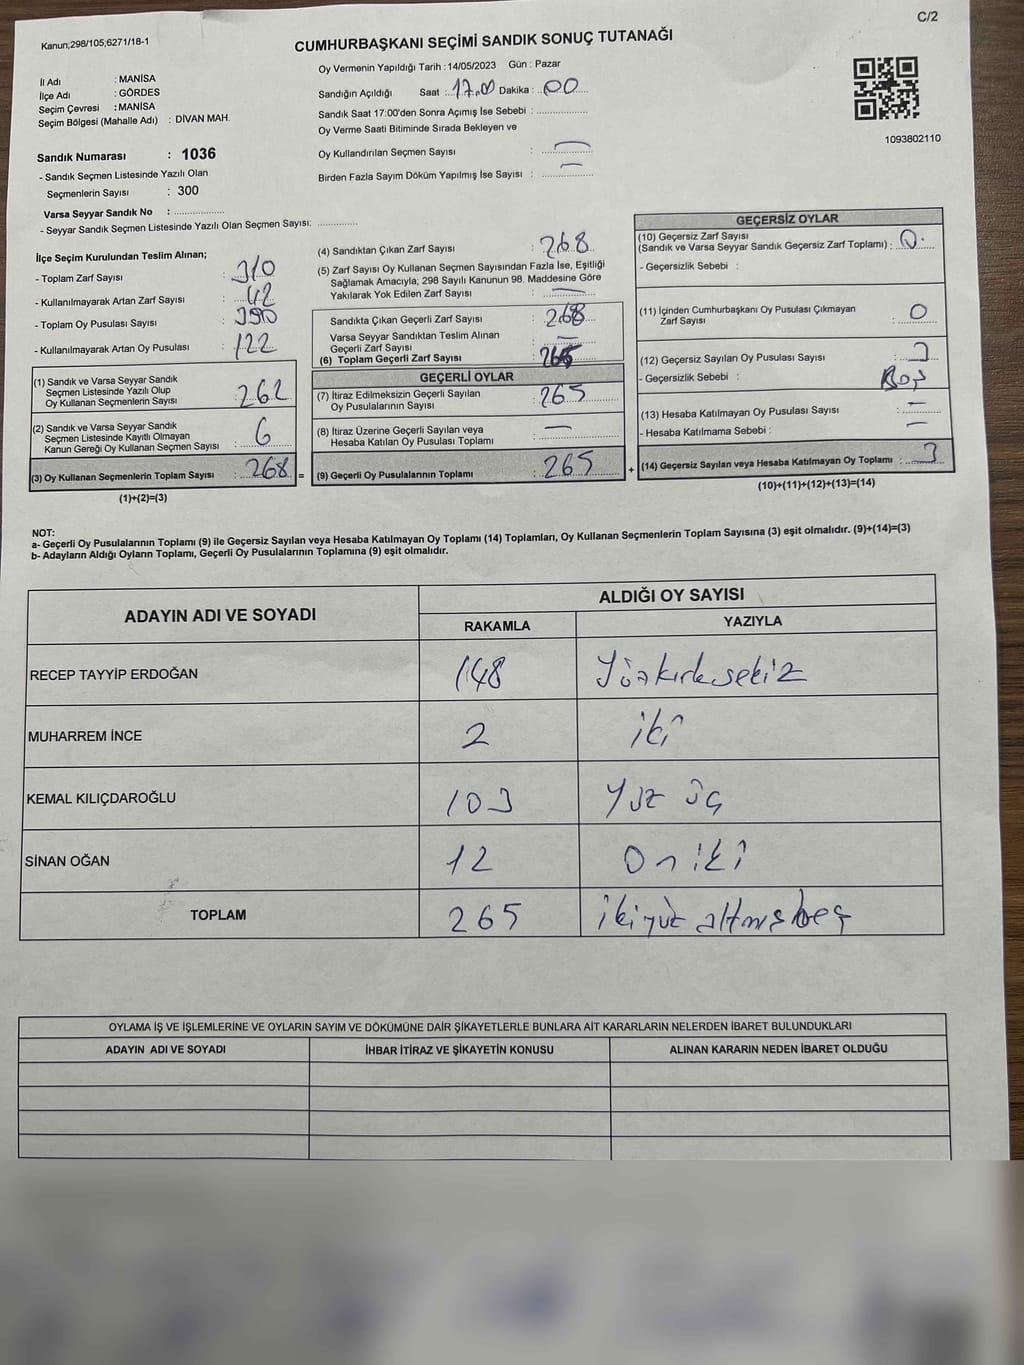 C/2
Kanun;298/105;6271/18-1
CUMHURBAŞKANI SEÇİMİ SANDIK SONUÇ TUTANAĞI
İl Adı : MANİSA
İlçe Adı : GÖRDES
Seçim Çevresi : MANİSA
Seçim Bölgesi (Mahalle Adı) : DİVAN MAH.
Oy Vermenin Yapıldığı Tarih : 14/05/2023 Gün : Pazar
Sandığın Açıldığı Saat : 17.00 Dakika : 00
Sandık Saat 17:00'den Sonra Açımış İse Sebebi :
Oy Verme Saati Bitiminde Sırada Bekleyen ve
Oy Kullandırılan Seçmen Sayısı : —
Birden Fazla Sayım Döküm Yapılmış İse Sayısı : —
1093802110
Sandık Numarası : 1036
- Sandık Seçmen Listesinde Yazılı Olan
Seçmenlerin Sayısı : 300
Varsa Seyyar Sandık No :
- Seyyar Sandık Seçmen Listesinde Yazılı Olan Seçmen Sayısı:
İlçe Seçim Kurulundan Teslim Alınan;
- Toplam Zarf Sayısı : 310
- Kullanılmayarak Artan Zarf Sayısı : 42
- Toplam Oy Pusulası Sayısı : 390
- Kullanılmayarak Artan Oy Pusulası : 122
(1) Sandık ve Varsa Seyyar Sandık
Seçmen Listesinde Yazılı Olup
Oy Kullanan Seçmenlerin Sayısı : 262
(2) Sandık ve Varsa Seyyar Sandık
Seçmen Listesinde Kayıtlı Olmayan
Kanun Gereği Oy Kullanan Seçmen Sayısı : 6
(3) Oy Kullanan Seçmenlerin Toplam Sayısı : 268 =
(1)+(2)=(3)
(4) Sandıktan Çıkan Zarf Sayısı : 268
(5) Zarf Sayısı Oy Kullanan Seçmen Sayısından Fazla İse, Eşitliği
Sağlamak Amacıyla; 298 Sayılı Kanunun 98. Maddesine Göre
Yakılarak Yok Edilen Zarf Sayısı : —
Sandıkta Çıkan Geçerli Zarf Sayısı : 268
Varsa Seyyar Sandıktan Teslim Alınan
Geçerli Zarf Sayısı : —
(6) Toplam Geçerli Zarf Sayısı :
GEÇERLİ OYLAR
(7) İtiraz Edilmeksizin Geçerli Sayılan
Oy Pusulalarının Sayısı : 265
(8) İtiraz Üzerine Geçerli Sayılan veya
Hesaba Katılan Oy Pusulası Toplamı : —
(9) Geçerli Oy Pusulalarının Toplamı : 265 +
GEÇERSİZ OYLAR
(10) Geçersiz Zarf Sayısı
(Sandık ve Varsa Seyyar Sandık Geçersiz Zarf Toplamı) : 0
- Geçersizlik Sebebi :
(11) İçinden Cumhurbaşkanı Oy Pusulası Çıkmayan
Zarf Sayısı : 0
(12) Geçersiz Sayılan Oy Pusulası Sayısı : 3
- Geçersizlik Sebebi : Boş
(13) Hesaba Katılmayan Oy Pusulası Sayısı : —
- Hesaba Katılmama Sebebi : —
(14) Geçersiz Sayılan veya Hesaba Katılmayan Oy Toplamı : 3
(10)+(11)+(12)+(13)=(14)
NOT:
a- Geçerli Oy Pusulalarının Toplamı (9) ile Geçersiz Sayılan veya Hesaba Katılmayan Oy Toplamı (14) Toplamları, Oy Kullanan Seçmenlerin Toplam Sayısına (3) eşit olmalıdır. (9)+(14)=(3)
b- Adayların Aldığı Oyların Toplamı, Geçerli Oy Pusulalarının Toplamına (9) eşit olmalıdır.
ADAYIN ADI VE SOYADI
ALDIĞI OY SAYISI
RAKAMLA YAZIYLA
RECEP TAYYİP ERDOĞAN 148 Yüzkırksekiz
MUHARREM İNCE 2 iki
KEMAL KILIÇDAROĞLU 103 Yüz üç
SİNAN OĞAN 12 On iki
TOPLAM 265 ikiyüz altmışbeş
OYLAMA İŞ VE İŞLEMLERİNE VE OYLARIN SAYIM VE DÖKÜMÜNE DAİR ŞİKAYETLERLE BUNLARA AİT KARARLARIN NELERDEN İBARET BULUNDUKLARI
ADAYIN ADI VE SOYADI İHBAR İTİRAZ VE ŞİKAYETİN KONUSU ALINAN KARARIN NEDEN İBARET OLDUĞU